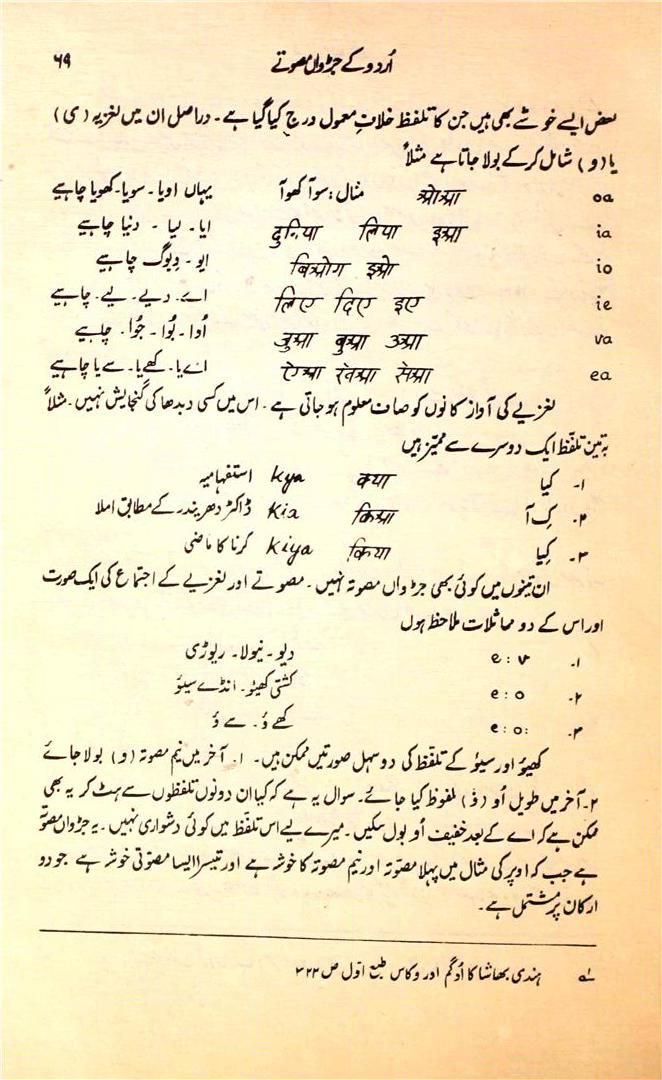 اُردو کے جڑواں مصوتے ۶۹
بعض ایسے خوشے بھی ہیں جن کا تلفظ خلافِ معمول درج کیا گیا ہے۔ دراصل ان میں لغزیہ (ی)
یا (و) شامل کر کے بولا جاتا ہے مثلاً
oa ओआ مثال: سوآ کھوآ یہاں اویا۔ سویا۔ کھویا چاہیے
ia इआ लिया दुनिया ایا۔ لیا ۔ دنیا چاہیے
io इओ बिओग ایو۔ وِیوگ چاہیے
ie इए दिए लिए اے۔ دیے۔ لیے۔ چاہیے
va उआ बुआ जुआ اُوا۔ بُوا۔ جُوا۔ چاہیے
ea ऐआ खेआ सेआ اے یا۔ کھے یا۔ سے یا چاہیے
لغزیے کی آواز کانوں کو صاف معلوم ہو جاتی ہے۔ اس میں کسی دبدھا کی گنجایش نہیں۔ مثلاً
یہ تین تلفّظ ایک دوسرے سے ممیّز ہیں
۱۔ کیا क्या kya استفہامیہ
۲۔ کِ آ किआ Kia ڈاکٹر دھریندر کے مطابق املا
۳۔ کِیا किया Kiya کرنا کا ماضی
ان تینوں میں کوئی بھی جڑواں مصوتہ نہیں۔ مصوتے اور لغزیے کے اجتماع کی ایک صورت
اور اس کے دو مماثلات ملاحظہ ہوں
۱۔ e:v دیو۔ نیولا۔ ریوڑی
۲۔ e:o کشتی کھیئو۔ انڈے سیئو
۳۔ e:o: کھے ؤ۔ سے ؤ
کھیئو اور سیئو کے تلفّظ کی دو سہل صورتیں ممکن ہیں۔ ۱۔ آخر میں نیم مصوتہ (و) بولا جائے
۲۔ آخر میں طویل اُو (ؤ) ملفوظ کیا جائے۔ سوال یہ ہے کہ کیا ان دونوں تلفظوں سے ہٹ کر یہ بھی
ممکن ہے کہ اے کے بعد خفیف اُو بول سکیں۔ میرے لیے اس تلفّظ میں کوئی دشواری نہیں۔ یہ جڑواں مصوّتہ
ہے جب کہ اوپر کی مثال میں پہلا مصوّتہ اور نیم مصوتہ کا خوشہ ہے اور تیسرا ایسا مصوّتی خوشہ ہے جو دو
ارکان پر مشتمل ہے۔
؎۱ ہندی بھاشا کا اُدگم اور وکاس طبع اوّل ص ۳۲۳